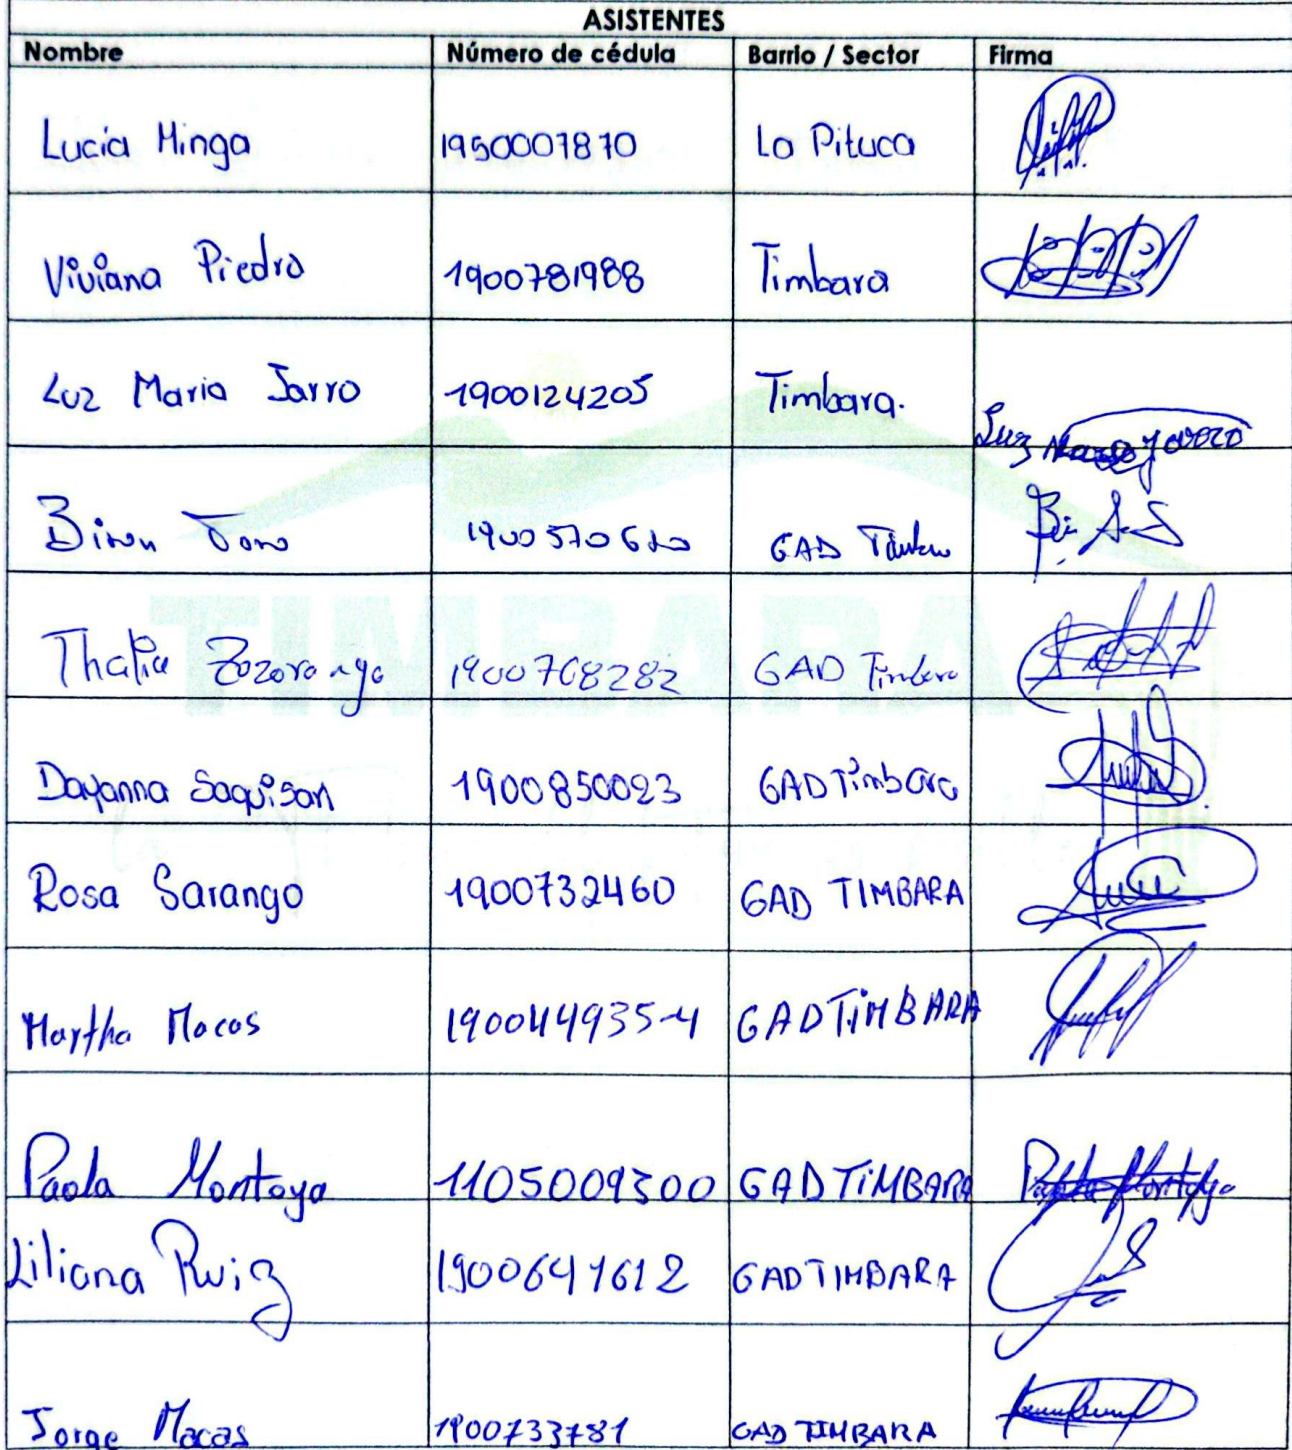 ASISTENTES
Nombre Número de cédula Barrio / Sector Firma
Lucía Minga 1950007870 La Pituca
Viviana Piedra 1900781988 Timbara
Luz Maria Jarro 1900124205 Timbara.
Luz
GAD
TIMBARA
Thalia Zozoranga 1900768282 GAD Timbara
Dayanna Saquisari 1900850023 GAD Timbara
Rosa Sarango 1900732460 GAD TIMBARA
Martha Macas 190044935-4 GAD TIMBARA
Paola Montoya 1105009300 GAD TIMBARA Paola Montoya
Liliana Ruiz 1900641612 GAD TIMBARA
Jorge Macas 1900733781 GAD TIMBARA